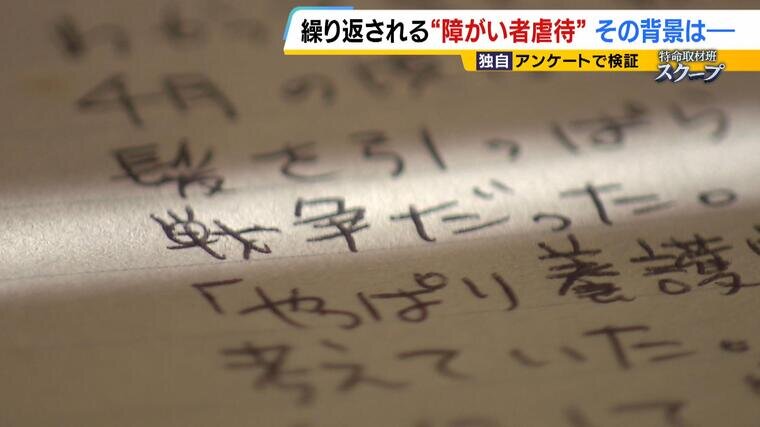 繰り返される“障がい者虐待” その背景は──
独自 アンケートで検証
特命取材班
スクープ
4月の
髪を引っぱら
戦争だった。
「やっぱり養護
考えていた。